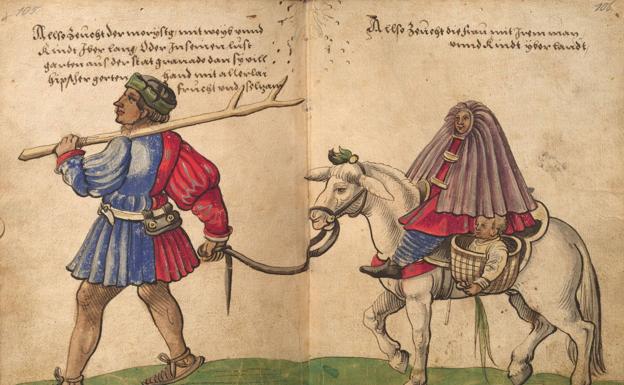 105.
Allso Zeücht der moryskg mit weyb vnnd
kindt Iber lang Oder In seinen lust
garten aus der stat granade dan sy vill
hipscher gerten hand mit allerlai
frücht vnd selzam
106
Allso Zeücht die frau mit Irem man
vnnd kindt yber landt